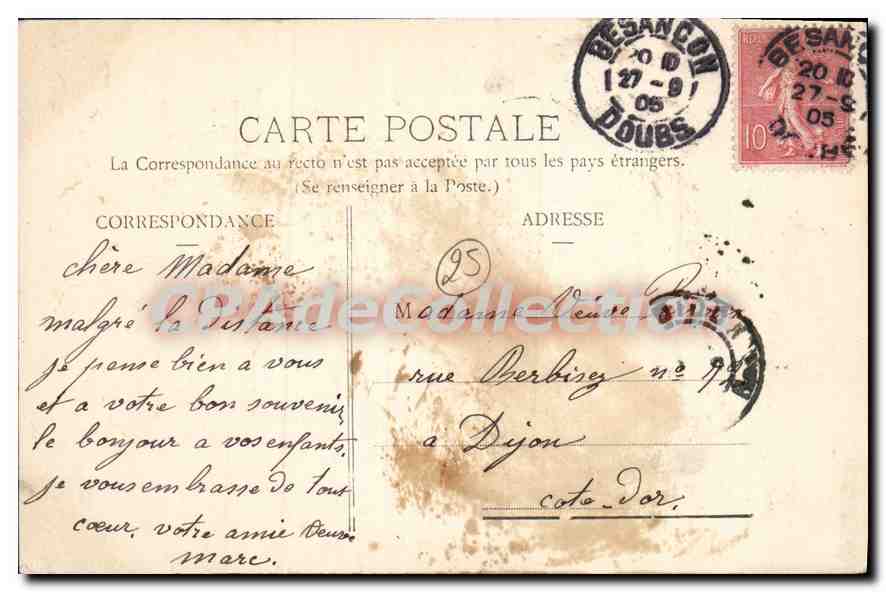 BESANÇON
20 10
27 - 9
05
DOUBS
BESANÇ
20 10
27 - 9
05
10
CARTE POSTALE
La Correspondance au recto n'est pas acceptée par tous les pays étrangers.
(Se renseigner à la Poste.)
CORRESPONDANCE
chère Madame
malgré la Distance
je pense bien a vous
et a votre bon souvenir,
le bonjour a vos enfants,
je vous embrasse de tout
cœur. votre amie Veuve
marc.
ADRESSE
25
Madame Veuve
rue Berbisey nº
a Dijon
cote-D'or.
CPAdeCollection